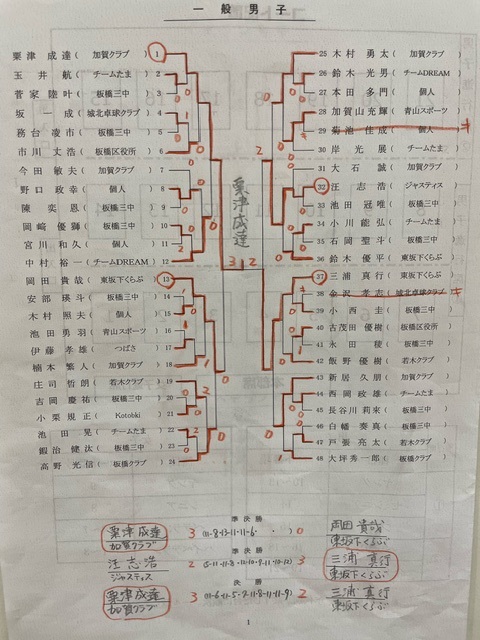 一般男子
粟津成達(加賀クラブ) 1
玉井航(チームたま) 2
菅家陸叶(板橋三中) 3
坂一成(城北卓球クラブ) 4
務台凌市(板橋三中) 5
市川丈浩(板橋区役所) 6
今田敏夫(加賀クラブ) 7
野口政幸(個人) 8
陳奕恩(板橋三中) 9
岡﨑優獅(板橋三中) 10
宮川和久(個人) 11
中村裕一(チームDREAM) 12
岡田貴哉(東坂下くらぶ) 13
安部瑛斗(板橋三中) 14
木村照夫(個人) 15
池田勇羽(青山スポーツ) 16
伊藤孝雄(つばさ) 17
楠本繁人(加賀クラブ) 18
庄司哲朗(若木クラブ) 19
吉岡慶祐(板橋三中) 20
小栗規正(Kotobuki) 21
池田晃(チームたま) 22
鍜治健汰(板橋三中) 23
高野光信(板橋クラブ) 24
25 木村勇太(加賀クラブ)
26 鈴木光男(チームDREAM)
27 本田多門(個人)
28 加賀山光輝(青山スポーツ)
29 菊池佳成(個人)
30 岸光展(チームたま)
31 大石誠(加賀クラブ)
32 汪志浩(ジャスティス)
33 池田冠唯(板橋三中)
34 小川能弘(チームたま)
35 石岡聖斗(板橋三中)
36 鈴木優平(東坂下くらぶ)
37 三浦真行(東坂下くらぶ)
38 金沢孝志(城北卓球クラブ)
39 小西圭(板橋三中)
40 古茂田優樹(板橋区役所)
41 永田稜(板橋三中)
42 飯野優樹(若木クラブ)
43 新居久朋(加賀クラブ)
44 西岡政雄(チームたま)
45 長谷川莉来(板橋三中)
46 白幡奏真(板橋三中)
47 戸張亮太(若木クラブ)
48 大坪秀一郎(板橋クラブ)
粟津成達
3 2
準決勝
粟津成達 3 (11-8・13-11・11-6・ ・ ) 0 岡田貴哉
加賀クラブ 東坂下くらぶ
準決勝
汪志浩 2 3 三浦真行
ジャスティス 東坂下くらぶ
決勝
粟津成達 3 2 三浦真行
加賀クラブ 東坂下くらぶ
1